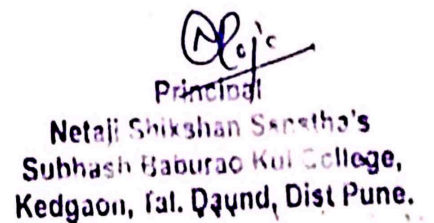 Principal
Netaji Shikshan Sanstha's
Subhash Baburao Kul College,
Kedgaon, Tal. Daund, Dist Pune.